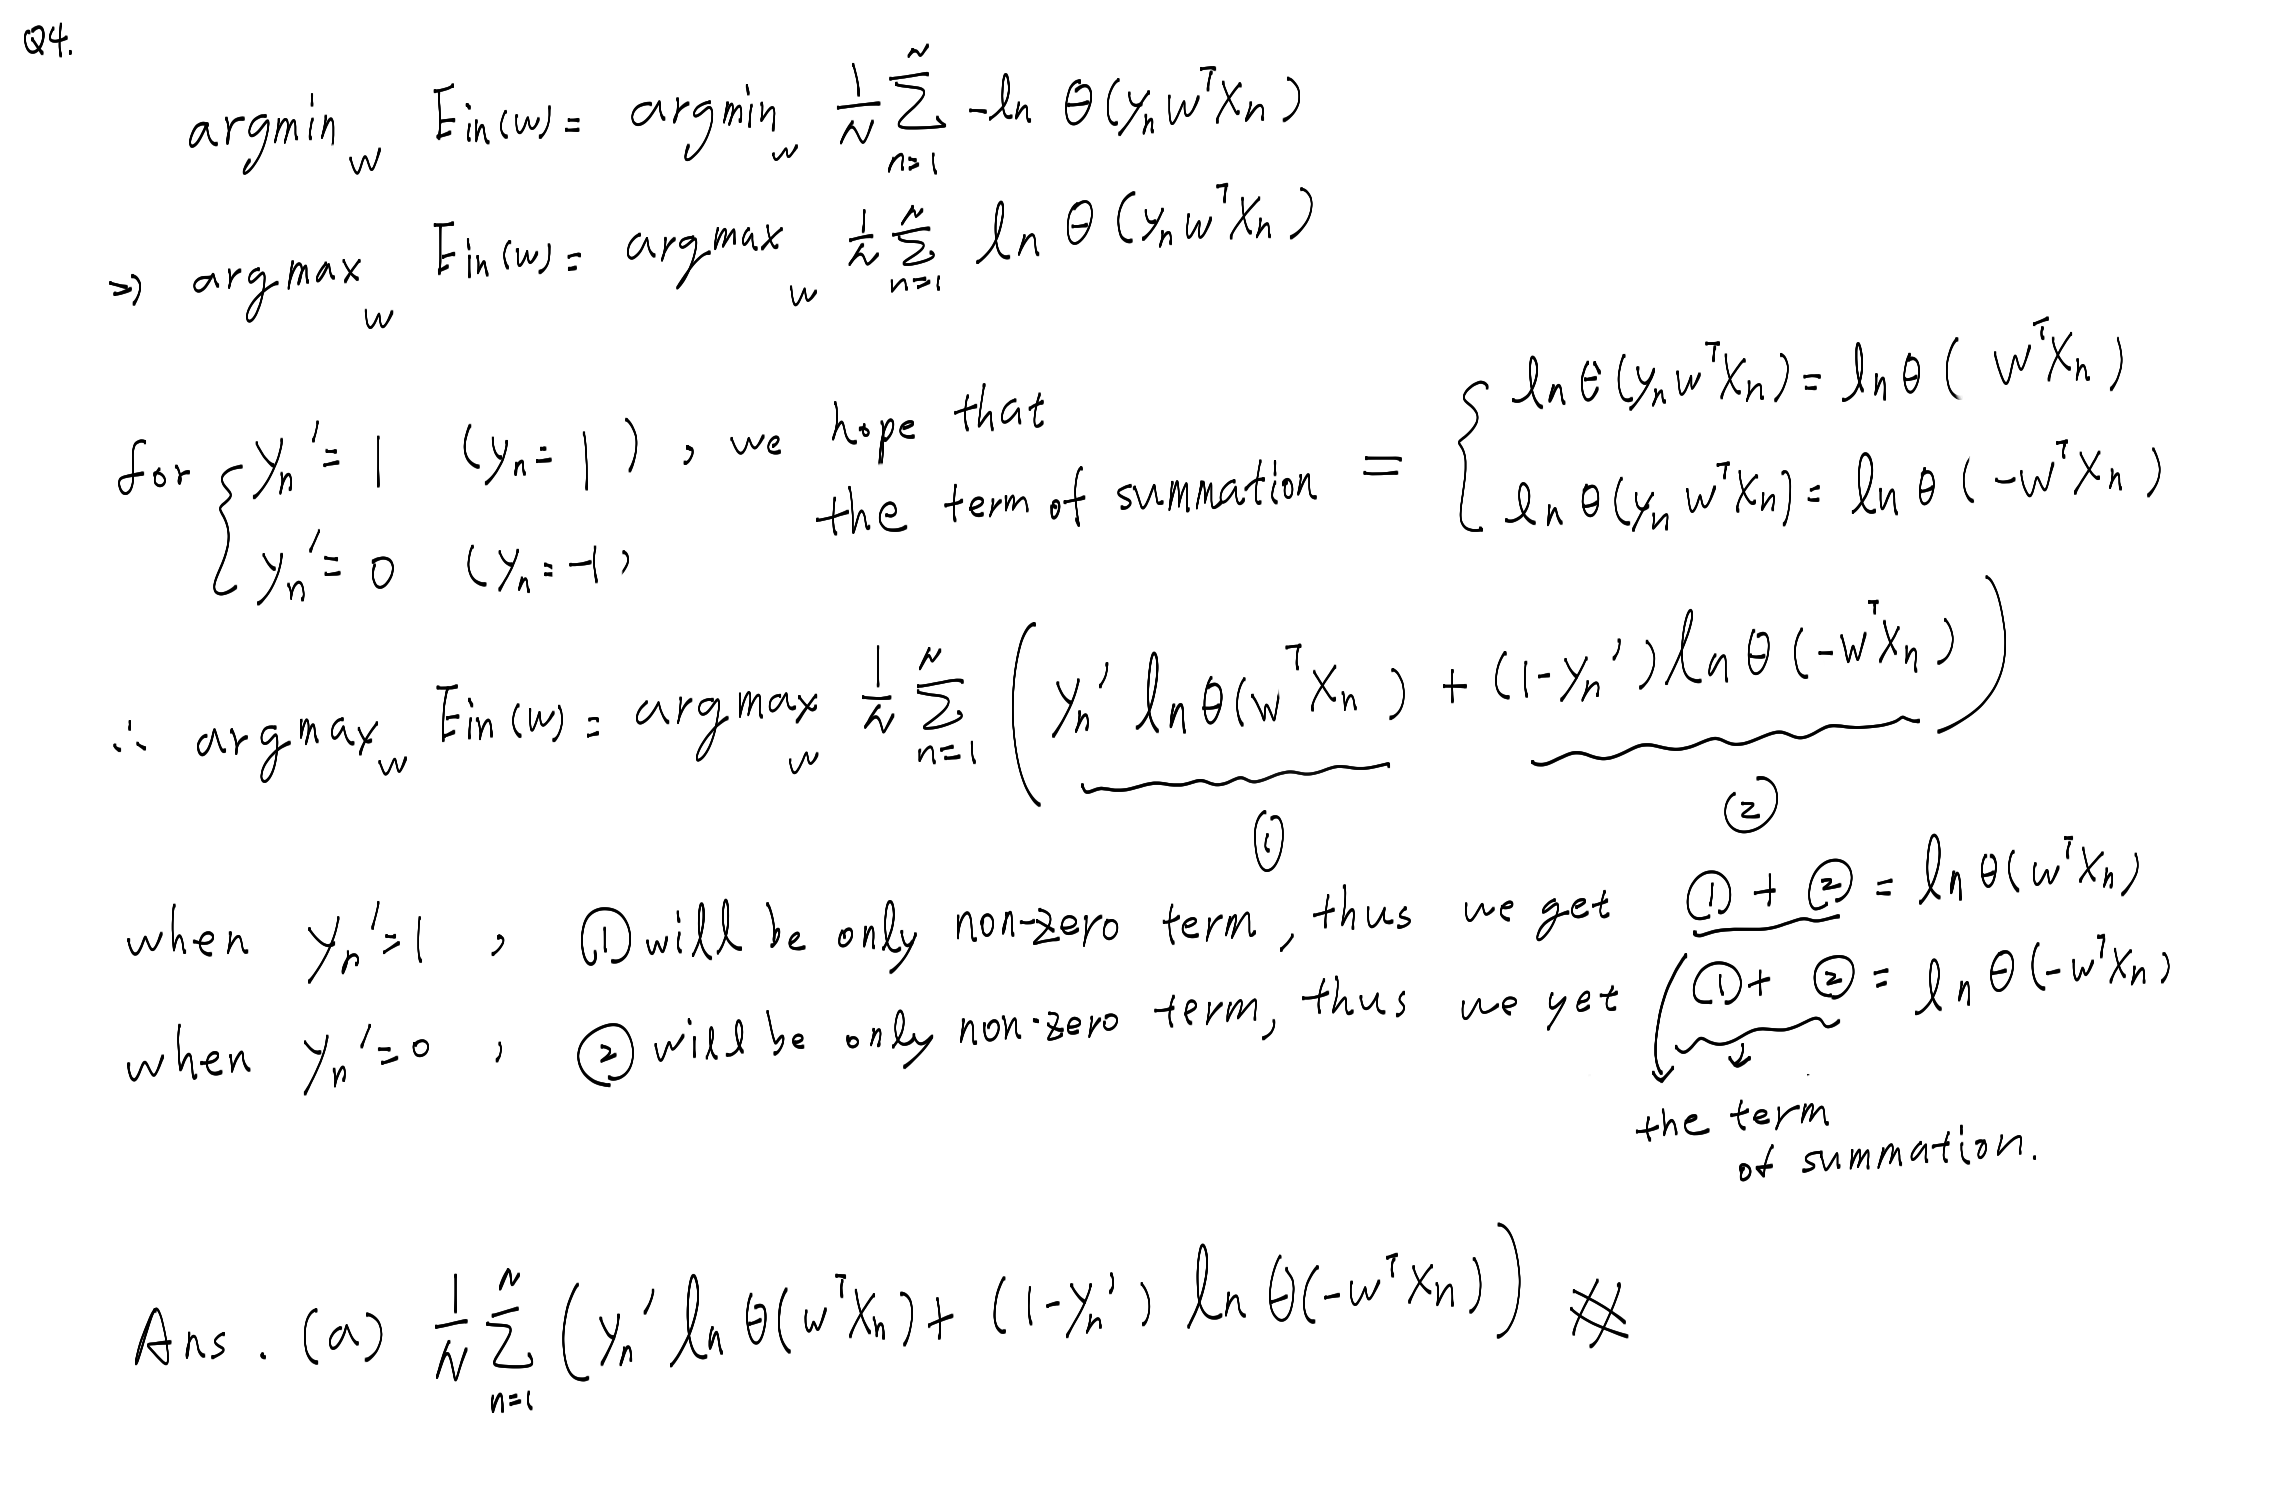 Q4.
argmin_w Ein(w) = argmin_w 1/N Σ_{n=1}^{N} -ln θ(y_n w^T x_n)
⇒ argmax_w Ein(w) = argmax_w 1/N Σ_{n=1}^{N} ln θ(y_n w^T x_n)
for { y_n' = 1 (y_n = 1), we hope that
the term of summation = { ln θ(y_n w^T x_n) = ln θ( w^T x_n)
ln θ(y_n w^T x_n) = ln θ(-w^T x_n)
y_n' = 0 (y_n = -1)
∴ argmax_w Ein(w) = argmax_w 1/N Σ_{n=1}^{N} ( y_n' ln θ(w^T x_n) + (1-y_n') ln θ(-w^T x_n) )
① ②
when y_n' = 1 , ① will be only non-zero term, thus we get ① + ② = ln θ(w^T x_n)
when y_n' = 0 , ② will be only non-zero term, thus we yet ① + ② = ln θ(-w^T x_n)
the term
of summation.
Ans. (a) 1/N Σ_{n=1}^{N} ( y_n' ln θ(w^T x_n) + (1-y_n') ln θ(-w^T x_n) ) #